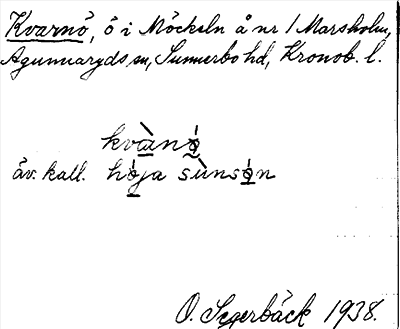 Kvarnö, ö i Möckeln å nr 1 Marsholm,
Agunnaryds sn, Sunnerbo hd, Kronob. l.
kvànǿ
äv. kall. hǿja sùnsǿn
O. Segerbäck 1938.